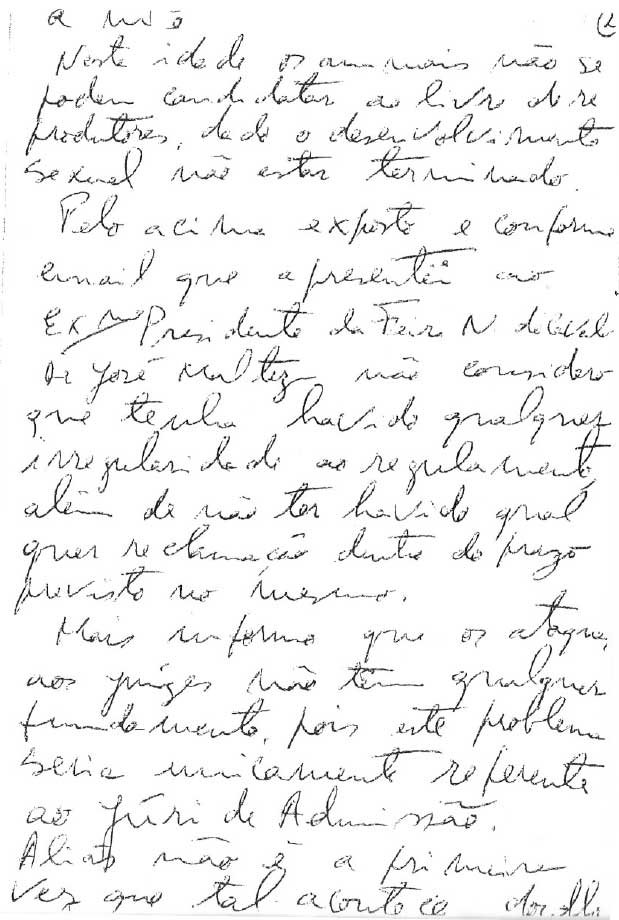 (2
Neste idade os animais não se
podem candidatar ao livro de re
produtores, dado o desenvolvimento
sexual não estar terminado.
Pelo acima exposto e conforme
email que apresentei ao
Exmo Presidente da Feira N do Caval
Dr José Maltez não considero
que tenha havido qualquer
irregularidade ao regulamento,
além de não ter havido qual
quer reclamação dentro do prazo
previsto no mesmo.
Mais informo que os ataques
aos juizes não têm qualquer
fundamento, pois este problema
seria unicamente referente
ao Júri de Admissão.
Aliás não é a primeira
vez que tal acontece